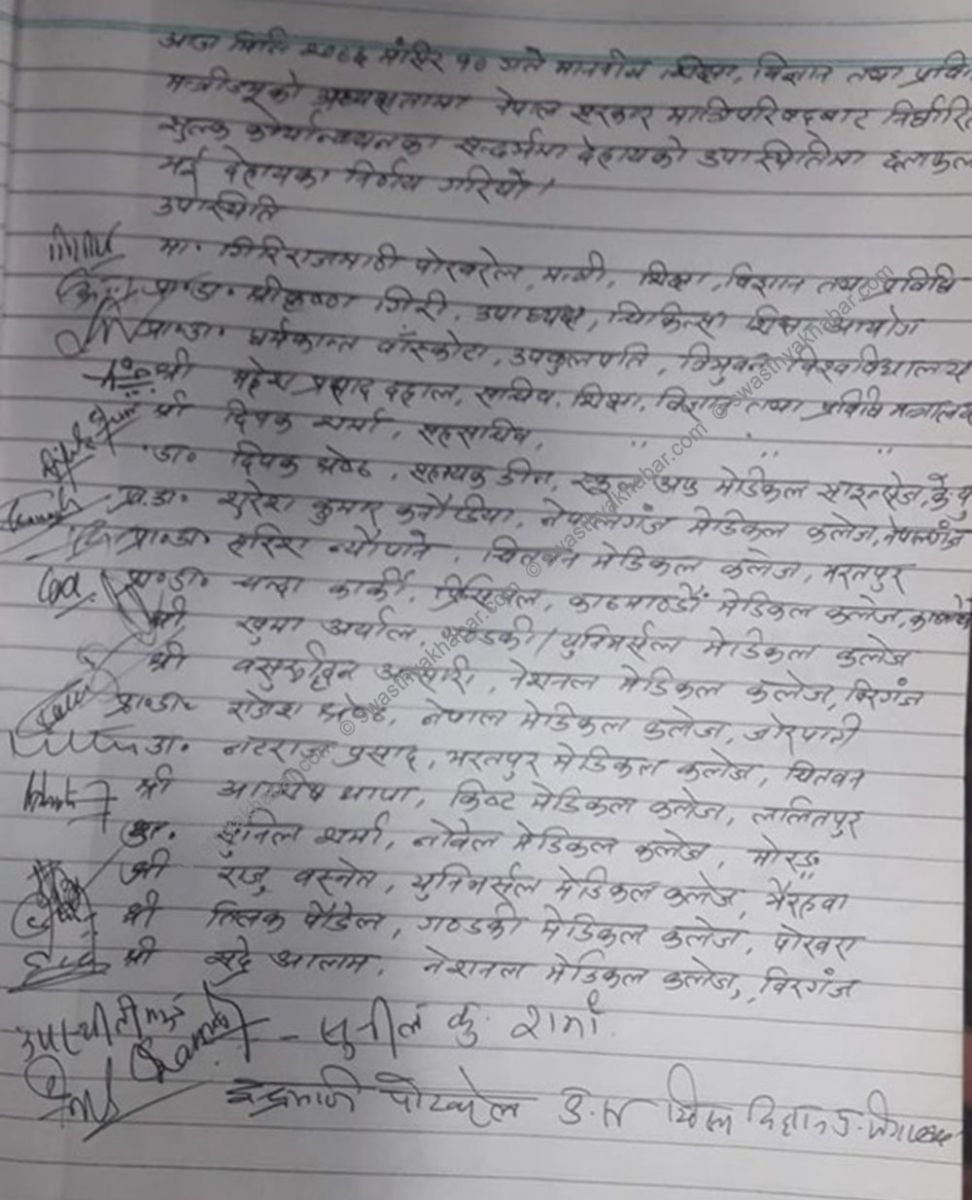 आज मिति २०७६ मंसिर १० गते माननीय शिक्षा, विज्ञान तथा प्रविधि
मन्त्रीज्यूको अध्यक्षतामा नेपाल सरकार मन्त्रिपरिषदबाट निर्धारित
शुल्क कार्यान्वयनका सन्दर्भमा देहायको उपस्थितिमा छलफल
भई देहायका निर्णय गरियो।
उपस्थिति
मा. गिरिराजमणी पोखरेल, मन्त्री, शिक्षा, विज्ञान तथा प्रविधि
प्रा.डा. श्रीकृष्ण गिरी, उपाध्यक्ष, चिकित्सा शिक्षा आयोग
प्रा.डा. धर्मकान्त बाँस्कोटा, उपकुलपति, त्रिभुवन विश्वविद्यालय
श्री महेश प्रसाद दहाल, सचिव, शिक्षा, विज्ञान तथा प्रविधि मन्त्रालय
श्री दिपक शर्मा, सहसचिव, " " "
डा. दिपक श्रेष्ठ, सहायक डीन, स्कूल अफ मेडिकल साइन्सेज, के.यु
प्रा.डा. सुरेश कुमार कनौडिया, नेपालगंज मेडिकल कलेज, नेपालगंज
प्रा.डा. हरिश न्यौपाने, चितवन मेडिकल कलेज, भरतपुर
प्रा.डा. चन्दा कार्की, प्रिन्सिपल, काठमाण्डौं मेडिकल कलेज,
श्री खुमा अर्याल, गण्डकी/युनिभर्सल मेडिकल कलेज
श्री बसरुद्दिन अन्सारी, नेशनल मेडिकल कलेज, विरगंज
प्रा.डा. राजेश श्रेष्ठ, नेपाल मेडिकल कलेज, जोरपाटी
डा. नटराज प्रसाद, भरतपुर मेडिकल कलेज, चितवन
श्री आशिष थापा, किष्ट मेडिकल कलेज, ललितपुर
डा. सुनिल शर्मा, नोबेल मेडिकल कलेज, मोरङ
श्री राजु बस्नेत, युनिभर्सल मेडिकल कलेज, भैरहवा
श्री तिलक पौडेल, गण्डकी मेडिकल कलेज, पोखरा
श्री सद्रे आलाम, नेशनल मेडिकल कलेज, विरगंज
उपस्थीती - सुनील कु. शर्मा
इन्द्रमणि पोखरेल
©swasthyakhabar.com ©swasthyakhabar.com ©swasthyakhabar.com ©swasthyakhabar.com